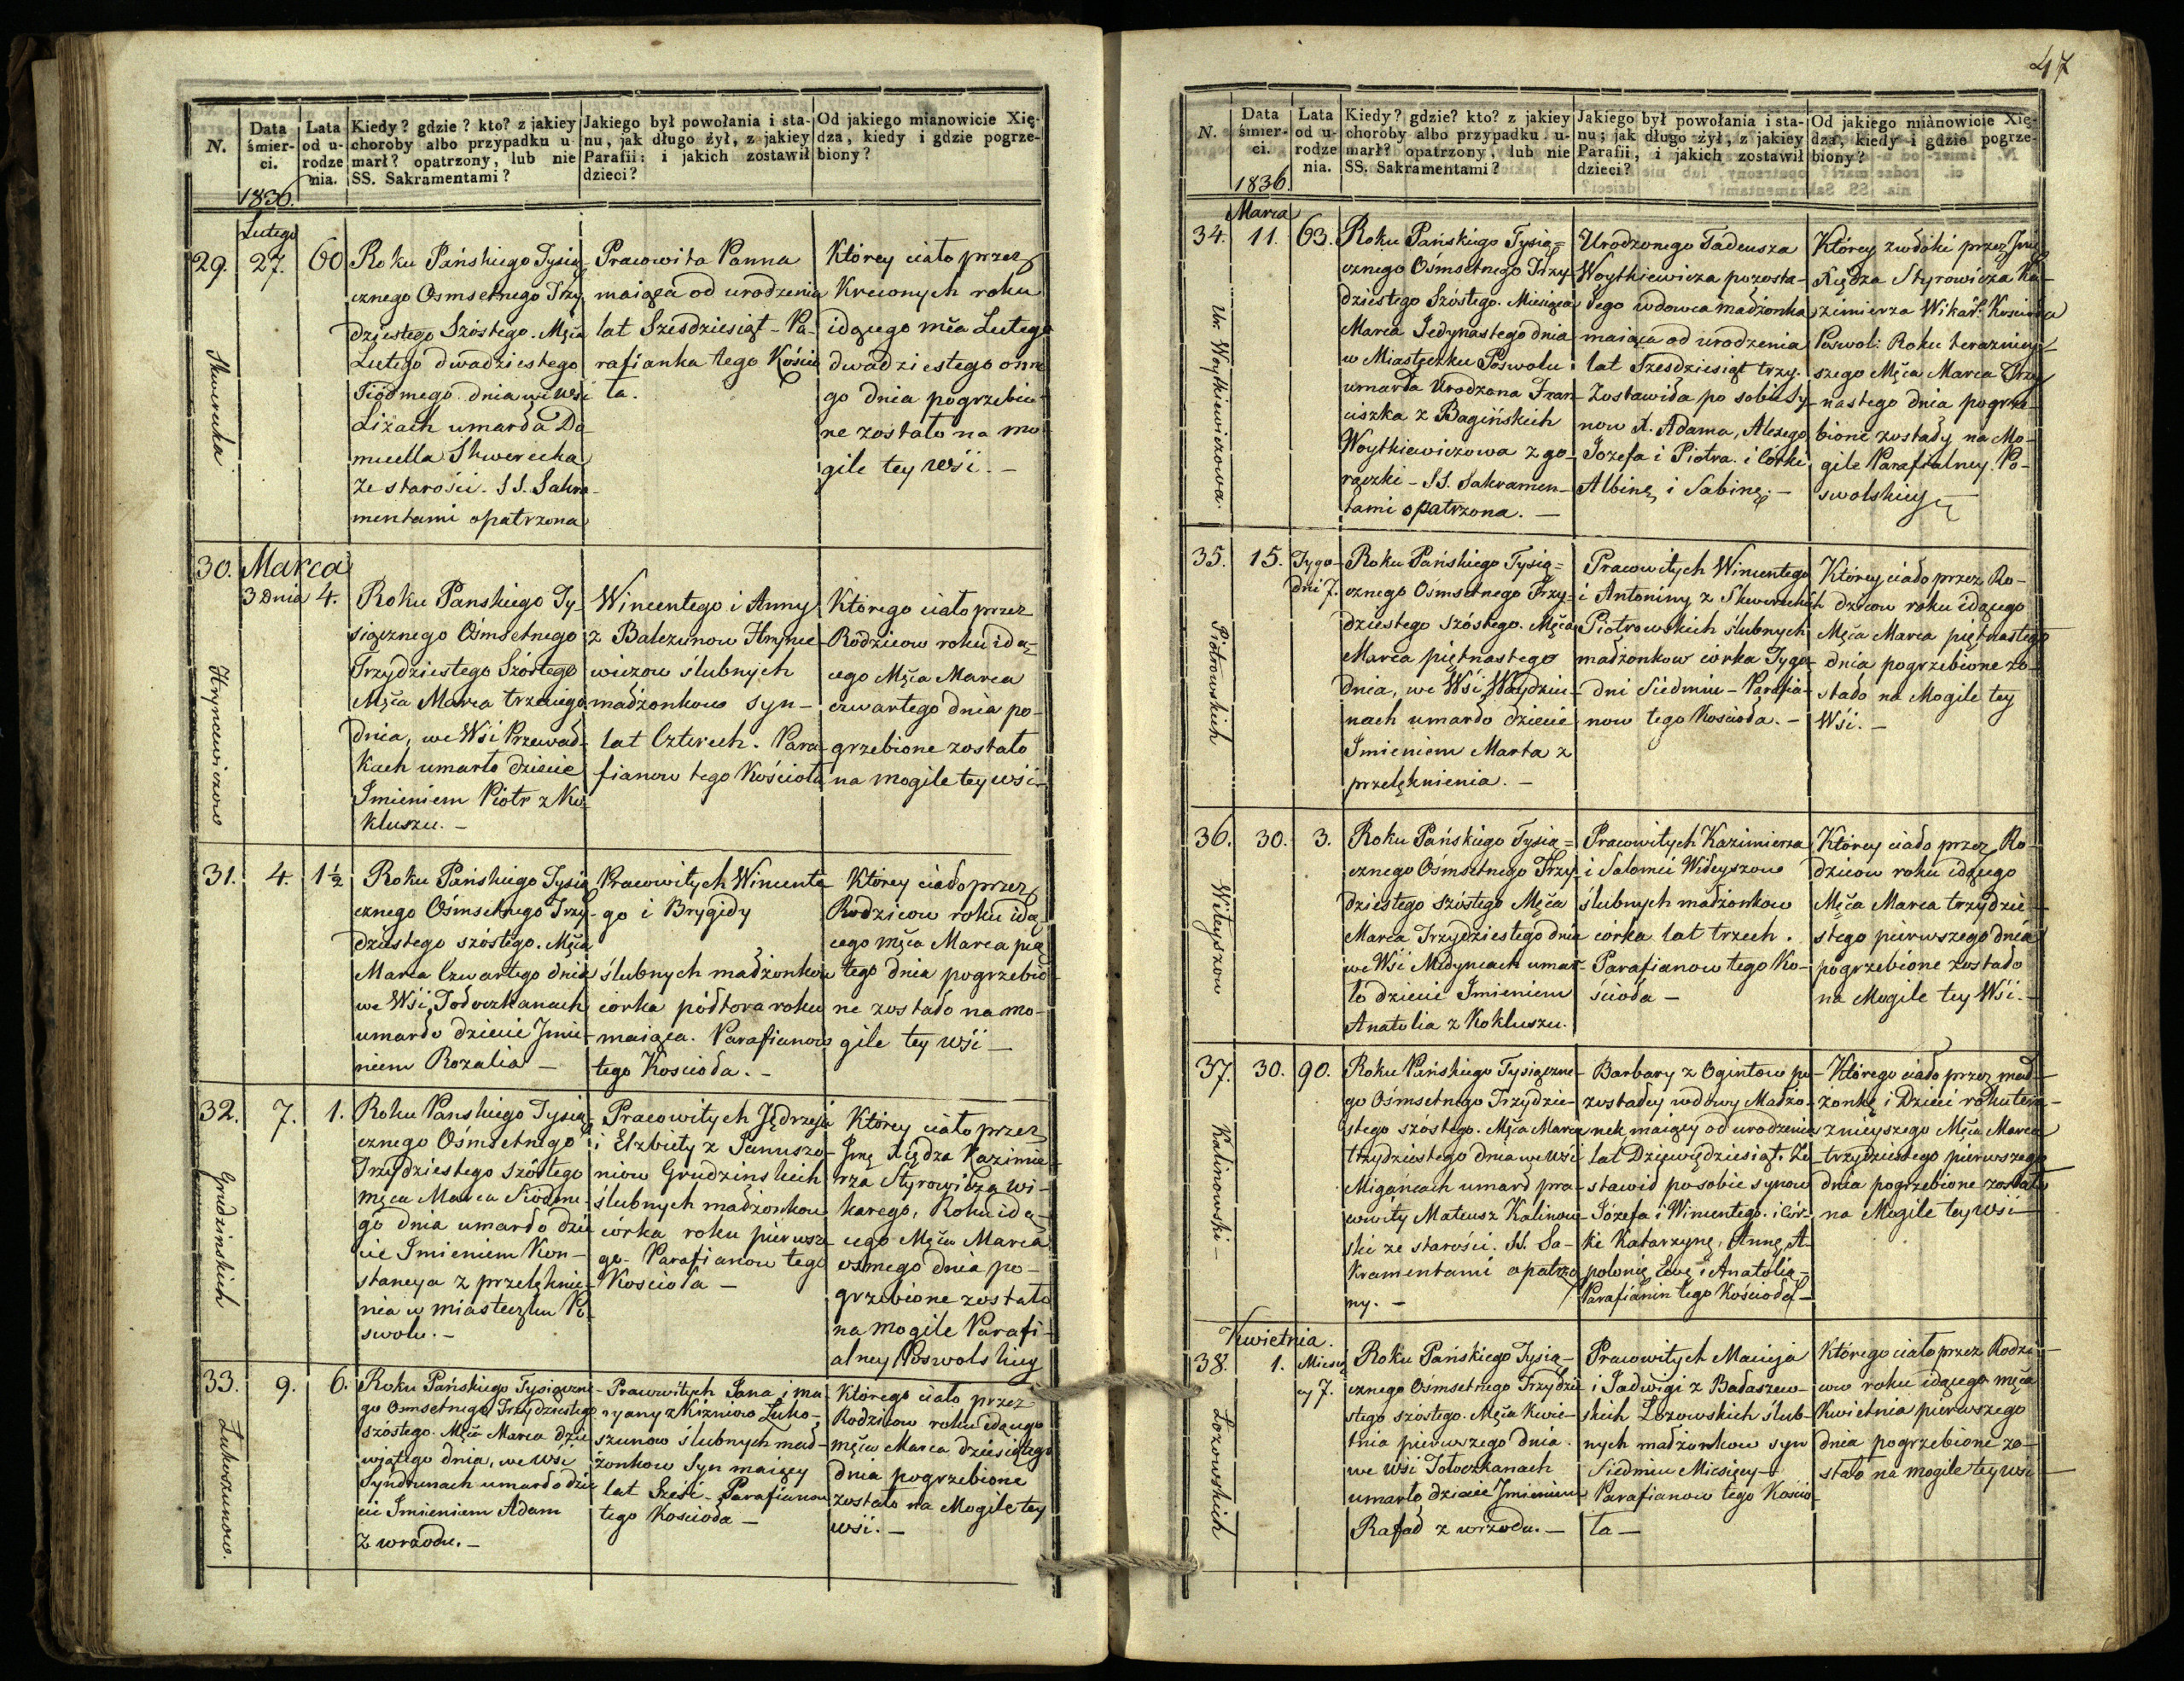 47
N.
Data
śmier-
ci.
1836.
Lata
od u-
rodze
nia.
Kiedy? gdzie? kto? z jakiey
choroby albo przypadku u-
marł? opatrzony, lub nie
SS. Sakramentami?
Jakiego był powołania i sta-
nu, jak długo żył, z jakiey
Parafii: i jakich zostawił
dzieci?
Od jakiego mianowicie Xię-
dza, kiedy i gdzie pogrze-
biony?
Lutego
29.
27.
60
Skwerecka
Roku Pańskiego Tysią
cznego Osmsetnego Trzy
dziestego Szóstego. Mca
Lutego dwadziestego
Siódmego dnia we wsi
Liżach umarła Da
Skwerecka
ze starości. SS. Sakra-
mentami opatrzona
Pracowita Panna
maiąca od urodzenia
lat Sześdziesiąt - Pa-
rafianka tego Kościo
ła.
Którey ciało przez
Krewnych roku
idącego mca Lutego
dwadziestego osm
go dnia pogrzebio-
ne zostało na mo
gile tey wsi. -
30.
Marca
3 dnia
4.
Hryncewiczow
Roku Panskiego Ty-
siącznego Ośmsetnego
Trzydziestego Szóstego
Mca Marca trzeciego
dnia, we Wsi Przewad-
kach umarło dziecie
Imieniem Piotr z Ko-
kluszu. -
Wincentego i Anny
z Balczunow Hrynce-
wiczow ślubnych
małżonkow syn -
lat Czterech. Para-
fianow tego Kościoła
Którego ciało przez
Rodzicow roku idą-
cego Mca Marca
czwartego dnia po-
grzebione zostało
na mogile tey wsi -
31.
4.
1½
Roku Pańskiego Tysią
cznego Ośmsetnego Trzy-
dziestego szóstego. Mca
Marca Czwartego dnia
we Wsi Tołoczkanach
umarło dziecie Imie-
niem Rozalia -
Pracowitych Wincente
go i Brygidy
ślubnych małżonkow
corka półtora roku
maiąca. Parafianow
tego Kościoła. -
Którey ciało przez
Rodzicow roku idą-
cego mca Marca pią
tego dnia pogrzebio-
ne zostało na mo-
gile tey wsi -
32.
7.
1.
Grudzinskich
Roku Panskiego Tysią
cznego Ośmsetnego
Trzydziestego szóstego
męca Marca Siódme
go dnia umarło dzie
cie Imieniem Kon-
stancya z przelęknie-
nia w miasteczku Po
swolu. -
Pracowitych Jędrzeja
i Elzbiety z Januszo-
niow Grudzinskich
ślubnych małżonkow
córka roku pierwsze
go. Parafianow tego
Kościoła -
Którey ciało przez
Jmę Xiędza Kazimie
rza Styrowicza Wi-
karego, Roku idą-
cego Mca Marca
osmego dnia po-
grzebione zostało
na mogile Parafi-
alney Poswolskiey
33.
9.
6.
Łukoszunow.
Roku Pańskiego Tysiączne
go Osmsetnego Trzydziestego
szóstego. Mca Marca dzie
wiątego dnia, we wsi
Syndrunach umarło dzie
cie Imieniem Adam
z wrzodu. -
Pracowitych Jana i ma
ryany z Kiżniow Łuko-
szunow ślubnych mał-
żonkow Syn maiący
lat Sześć - Parafianow
tego Kościoła -
Którego ciało przez
Rodzicow roku idącego
męca Marca dziesiątego
dnia pogrzebione
zostało na Mogile tey
wsi. -
N.
Data
śmier-
ci.
1836.
Lata
od u-
rodze
nia.
Kiedy? gdzie? kto? z jakiey
choroby albo przypadku u-
marł? opatrzony, lub nie
SS. Sakramentami?
Jakiego był powołania i sta-
nu; jak długo żył, z jakiey
Parafii, i jakich zostawił
dzieci?
Od jakiego mianowicie Xię-
dza, kiedy i gdzie pogrze-
biony?
Marca
34.
11.
63.
Ur. Woytkiewiczowa
Roku Pańskiego Tysią=
cznego Ośmsetnego Trzy-
dziestego Szóstego. Miesiąca
Marca Jedynastego dnia
w Miasteczku Poswolu
umarła Urodzona Fran-
ciszka z Bagińskich
Woytkiewiczowa z go-
rączki - SS. Sakramen-
tami opatrzona. -
Urodzonego Tadeusza
Woytkiewicza pozosta-
łego wdowca małżonka
maiąca od urodzenia
lat Sześdziesiąt trzy.
Zostawiła po sobie Sy-
now: Adama, Alexego
Jozefa i Piotra. i Corki
Albinę i Sabinę. -
Którey zwłoki przez Jmę
Xiędza Styrowicza Ka-
zimierza Wikar: Kościoła
Poswol: Roku teraźniey-
szego Męca Marca Trzy
nastego dnia pogrze-
bione zostały na Mo-
gile Parafialney. Po-
swolskiey
35.
15.
Tygo-
dni 7.
Piotrowskich
Roku Pańskiego Tysią=
cznego Ośmsetnego Trzy-
dziestego szóstego. Męca
Marca piętnastego
dnia, we Wsi Waydziu-
nach umarło dziecie
Imieniem Marta z
przelęknienia. -
Pracowitych Wincentego
i Antoniny z Skwereckich
Piotrowskich ślubnych
małżonkow corka Tygo-
dni Siedmiu - Parafia-
now tego Kościoła. -
Którey ciało przez Ro-
dzicow roku idącego
Męca Marca piętnastego
dnia pogrzebione zo-
stało na Mogile tey
Wsi. -
36.
30.
3.
Witeyszow
Roku Pańskiego Tysią=
cznego Ośmsetnego Trzy-
dziestego szóstego Męca
Marca Trzydziestego dnia
we Wsi Medyncach umar-
ło dziecie Imieniem
Anatolia z Kokluszu.
Pracowitych Kazimierza
i Salomei Witeyszow
ślubnych małżonkow
corka lat trzech.
Parafianow tego Ko-
ścioła -
Którey ciało przez Ro-
dzicow roku idącego
Męca Marca trzydzie-
stego pierwszego dnia
pogrzebione zostało
na Mogile tey Wsi. -
37.
30.
90.
Kalinowski -
Roku Pańskiego Tysiączne-
go Ośmsetnego Trzydzie-
stego szóstego. Męca Marca
trzydziestego dnia we wsi
Migańcach umarł pra-
cowity Mateusz Kalinow-
ski ze starości. SS. Sa-
kramentami opatrzo
ny. -
Barbary z Ogintow po-
zostałey wdowy Małżo-
nek, maiący od urodzenia
lat Dziewiędziesiąt. Zo-
stawił po sobie synow
Józefa i Wincentego. i Cór-
ki Katarzynę, Annę, A-
polonię Ewę i Anatolią -
Parafianin tego Kościoła -
Którego ciało przez mał-
zonkę i Dzieci roku tera-
znieyszego Męca Marca
trzydziestego pierwszego
dnia pogrzebione zostało
na Mogile tey wsi -
Kwietnia.
38.
1.
Miesię
cy 7.
Łozowskich
Roku Pańskiego Tysią-
cznego Ośmsetnego Trzydzie
stego szóstego. Męca Kwie-
tnia pierwszego dnia.
we wsi Tołoczkanach
umarło dziecie Imieniem
Rafał z wrzodu. -
Pracowitych Macieja
i Jadwigi z Bałaszew-
skich Łozowskich ślub-
nych małżonkow syn
Siedmiu Miesięcy -
Parafianow tego Kościo-
ła -
Którego ciało przez Rodzi-
cow roku idącego męca
Kwietnia pierwszego
dnia pogrzebione zo-
stało na mogile tey wsi -